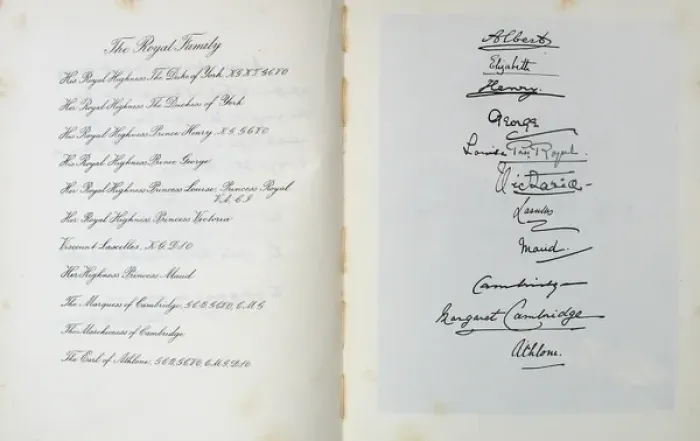 The Royal Family
His Royal Highness The Duke of York, K.G. K.T. G.C.V.O
Her Royal Highness The Duchess of York
His Royal Highness Prince Henry, K.G. G.C.V.O
His Royal Highness Prince George
Her Royal Highness Princess Louise, Princess Royal
V.A. C.I
Her Royal Highness Princess Victoria
Viscount Lascelles, K.G. D.S.O
Her Highness Princess Maud
The Marquess of Cambridge, G.C.B, G.C.V.O, C.M.G
The Marchioness of Cambridge
The Earl of Athlone, G.C.B, G.C.V.O, C.M.G, D.S.O
Albert
Elizabeth
Henry.
George
Louise Pss Royal.
Victoria
Lascelles
Maud.
Cambridge
Margaret Cambridge
Athlone.